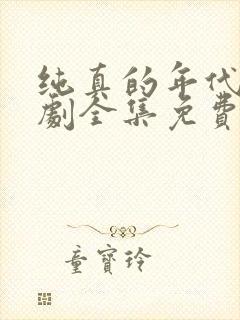 纯真的年代
劇全集免費
童寶玲